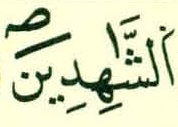 اَ۬لشَّٰهِدِينَۖ